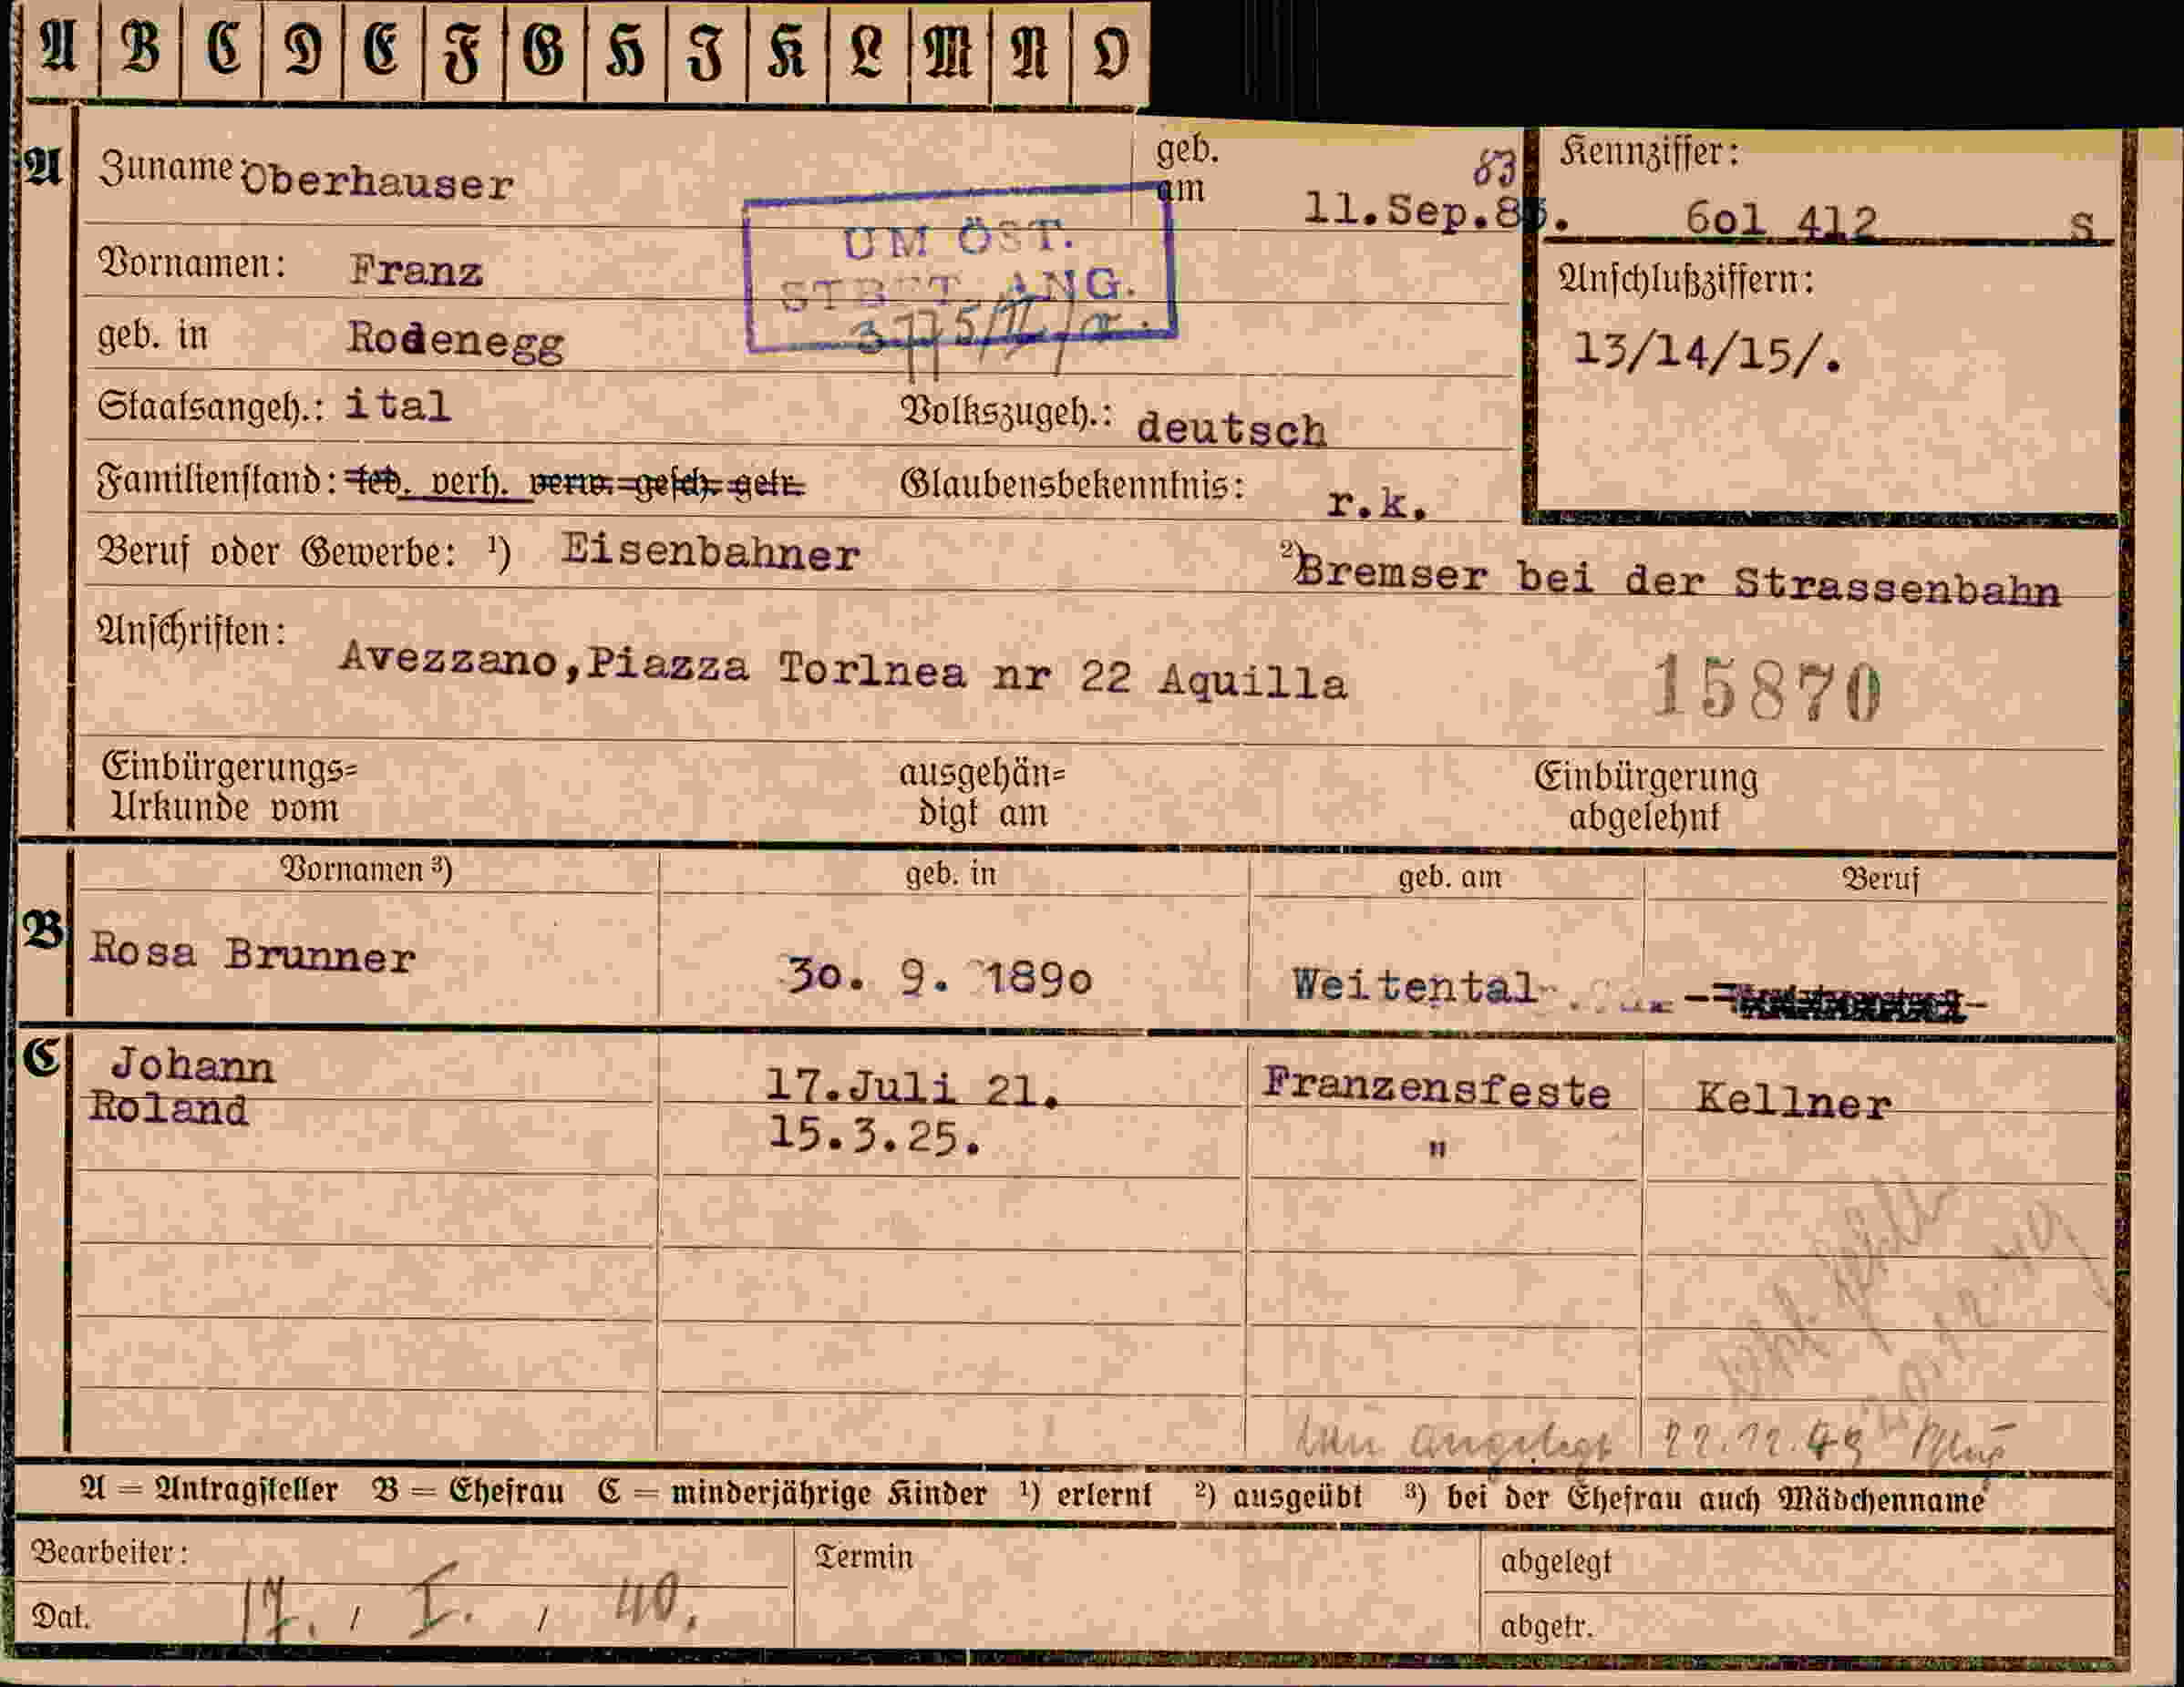 A B C D E F G H I K L M N O
A Zuname: Oberhauser geb. am 11.Sep.8 . 83 Kennziffer: 6o1 412 S
UM ÖST.
STBGT. ANG.
Vornamen: Franz
Anschlußziffern:
geb. in Rodenegg
13/14/15/.
Staatsangeh.: ital Volkszugeh.: deutsch
Familienstand: led. verh. verw. gesch. getr. Glaubensbekenntnis: r.k.
Beruf oder Gewerbe: ¹) Eisenbahner ²) Bremser bei der Strassenbahn
Anschriften: Avezzano,Piazza Torlnea nr 22 Aquilla
15870
Einbürgerungs= ausgehän= Einbürgerung
Urkunde vom digt am abgelehnt
Vornamen ³) geb. in geb. am Beruf
B Rosa Brunner 3o. 9. 189o Weitental
C Johann 17.Juli 21. Franzensfeste Kellner
Roland 15.3.25. "
angelegt
A = Antragsteller B = Ehefrau C = minderjährige Kinder ¹) erlernt ²) ausgeübt ³) bei der Ehefrau auch Mädchenname
Bearbeiter: Termin abgelegt
Dat. 17. / I. / 40. abgetr.